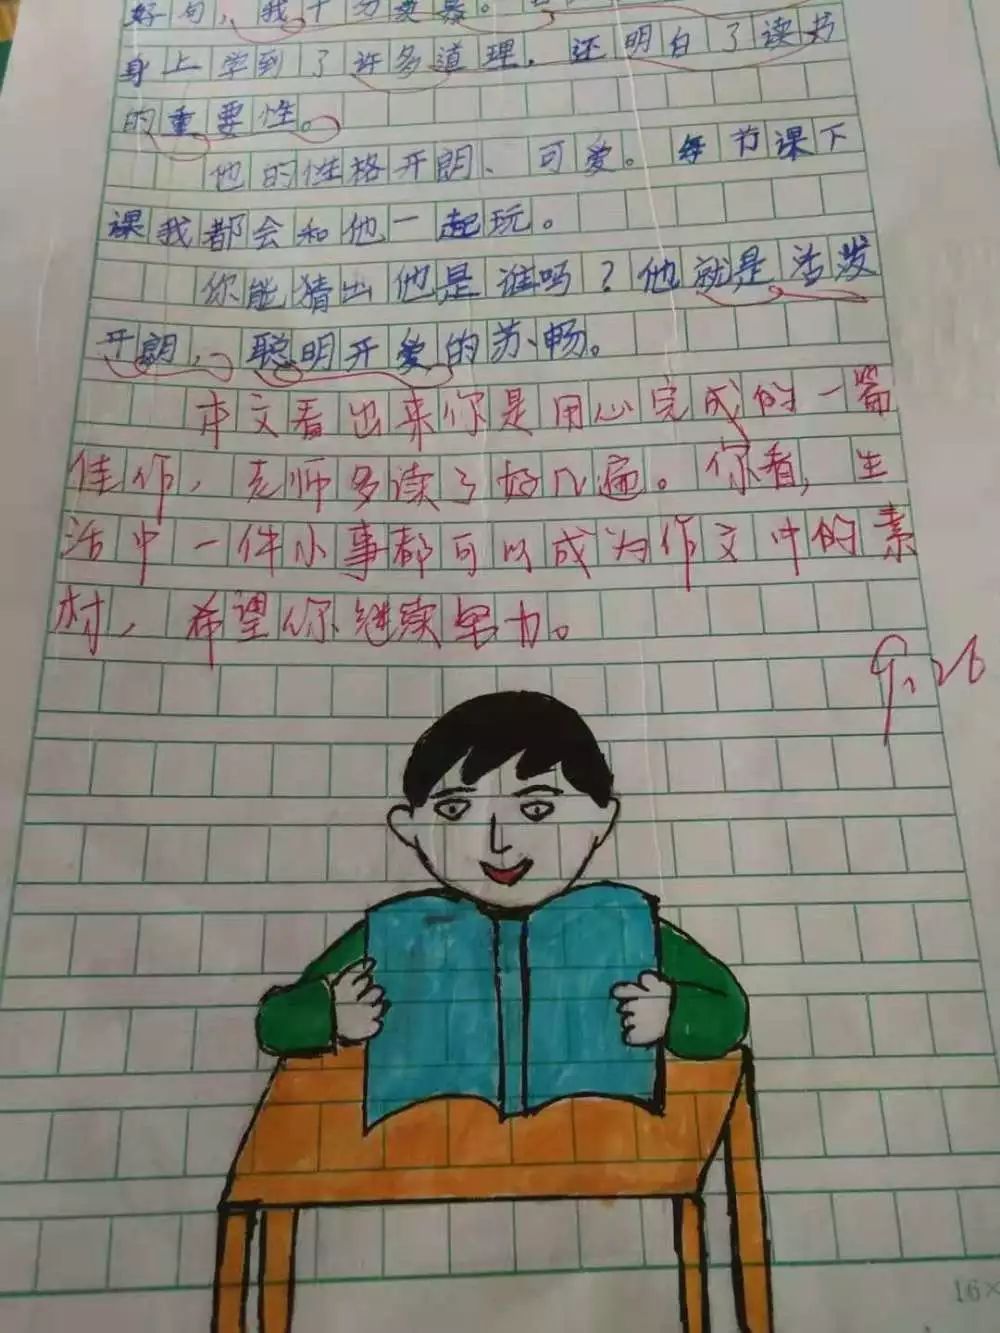 好句，我十分羡慕。
身上学到了许多道理，还明白了读书
的重要性。
他的性格开朗、可爱。每节课下
课我都会和他一起玩。
你能猜出他是谁吗？他就是活泼
开朗，聪明开爱的苏畅。
本文看出来你是用心完成的一篇
佳作，老师多读了好几遍。你看，生
活中一件小事都可以成为作文中的素
材，希望你继续努力。
9.26
16×